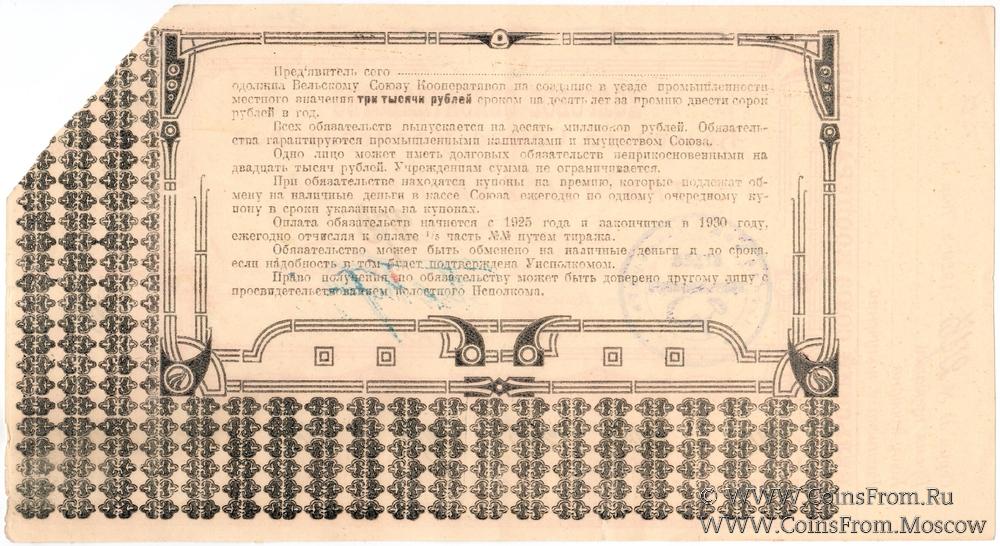 Пред'явитель сего
одолжил Вельскому Союзу Кооперативов на создание в уезде промышленности
местного значения три тысячи рублей сроком на десять лет за премию двести сорок
рублей в год.
Всех обязательств выпускается на десять миллионов рублей. Обязатель-
ства гарантируются промышленными капиталами и имуществом Союза.
Одно лицо может иметь долговых обязательств неприкосновенными на
двадцать тысяч рублей. Учреждениям сумма не ограничивается.
При обязательстве находятся купоны на премию, которые подлежат об-
мену на наличные деньги в кассе Союза ежегодно по одному очередному ку-
пону в сроки указанные на купонах.
Оплата обязательств начнется с 1925 года и закончится в 1930 году,
ежегодно отчисляя к оплате 1/5 часть №№ путем тиража.
Обязательство может быть обменено на наличные деньги и до срока,
если надобность в том будет подтверждена Уисполкомом.
Право получения по обязательству может быть доверено другому лицу с
просвидетельствованием Волостного Исполкома.
© www.CoinsFrom.Ru
www.CoinsFrom.Moscow